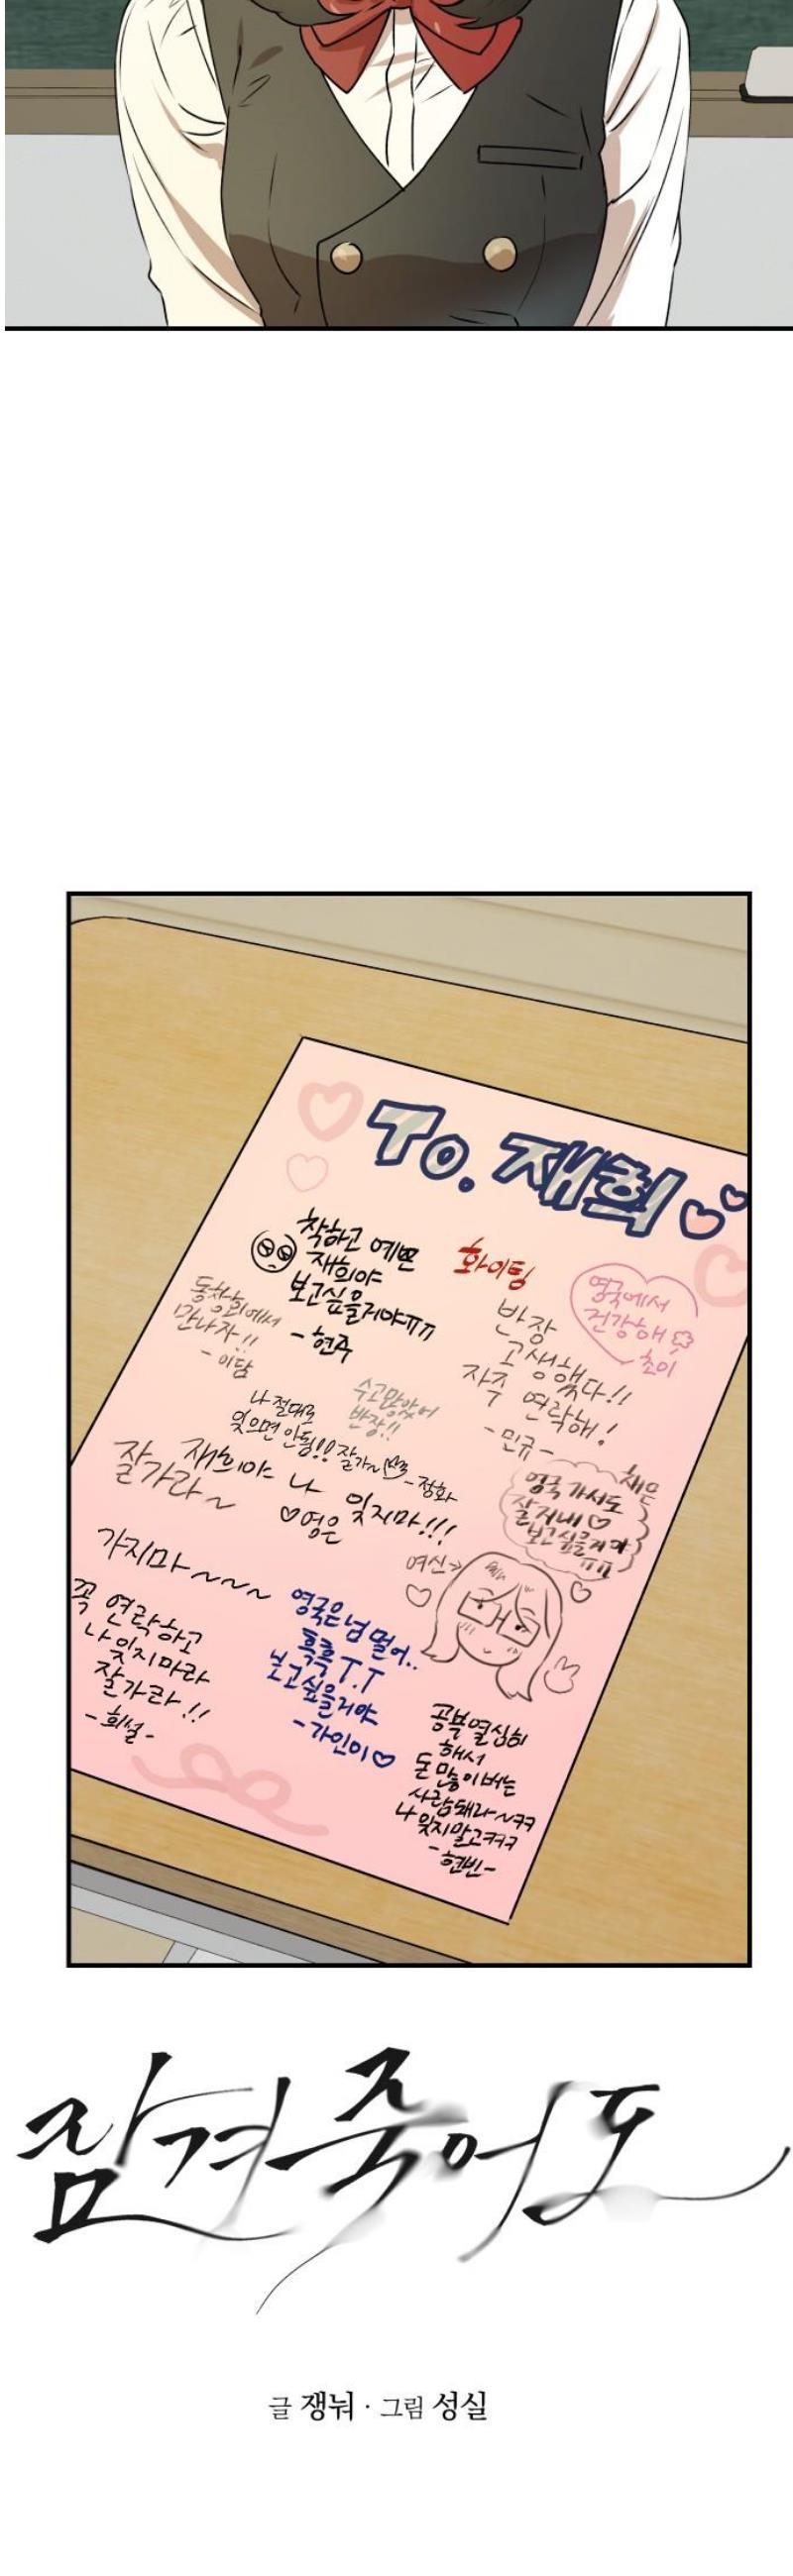 To. 재희
착하고 예쁜
재희야
보고싶을거야ㅠㅠ
-현주
화이팅
영국에서
건강해
초이
동창회에서
만나자!!
-이담
반장
고생했다!!
자주 연락해!
-민규-
수고많았어
반장!!
나 절대로
잊으면 안됨!! 잘가~
-정화
잘가라~
재희야 나 잊지마!!!
♡영은
채은
영국 가서도
잘 지내♡
보고싶을거야
ㅠㅠ
여신→
가지마~~~~
꼭 연락하고
나 잊지마라
잘가라!!
-희설-
영국은 넘 멀어..
흑흑 T.T
보고싶을거야
-가인이♡
공부열심히
해서
돈 많이 버는
사람돼라~ㅋㅋ
나 잊지말고ㅋㅋㅋ
-현빈-
잠겨죽어도
글 쟁뉘 · 그림 성실